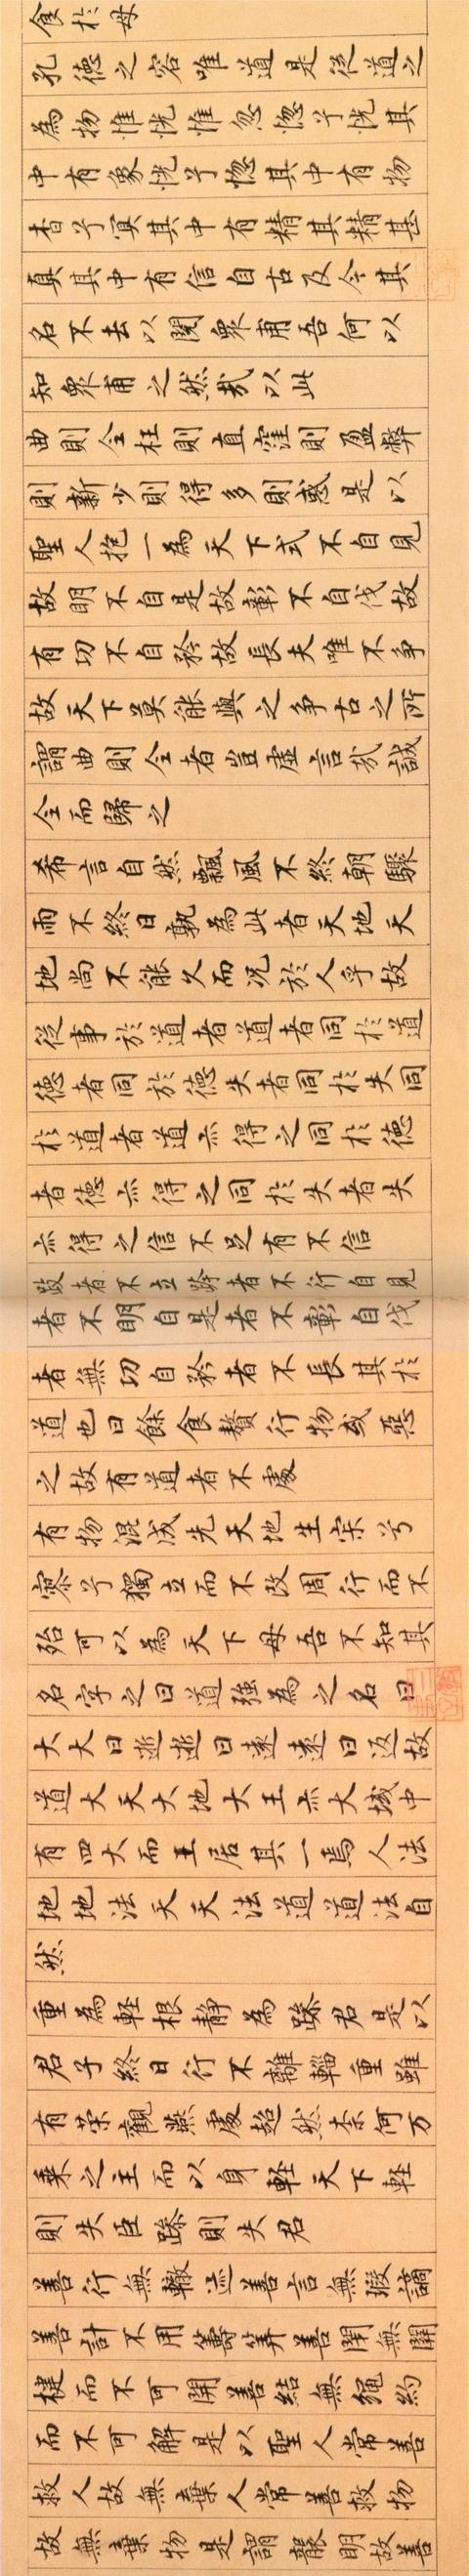 食於母
孔德之容唯道是從道之
為物惟恍惟忽惚兮恍其
中有象恍兮惚其中有物
杳兮冥其中有精其精甚
真其中有信自古及今其
名不去以閱衆甫吾何以
知衆甫之然哉以此
曲則全枉則直窪則盈弊
則新少則得多則惑是以
聖人抱一為天下式不自見
故明不自是故彰不自伐故
有功不自矜故長夫唯不爭
故天下莫能與之爭古之所
謂曲則全者豈虛言哉誠
全而歸之
希言自然飄風不終朝驟
雨不終日孰為此者天地天
地尚不能久而况於人乎故
從事於道者道者同於道
德者同於德失者同於失同
於道者道亦得之同於德
者德亦得之同於失者失
亦得之信不足有不信
跂者不立跨者不行自見
者不明自是者不彰自伐
者無功自矜者不長其於
道也曰餘食贅行物或惡
之故有道者不處
有物混成先天地生宋兮
寥兮獨立而不改周行而不
殆可以為天下母吾不知其
名字之曰道強為之名曰
大大曰逝逝曰遠遠曰返故
道大天大地大王亦大域中
有四大而王居其一焉人法
地地法天天法道道法自
然
重為輕根靜為躁君是以
君子終日行不離輜重雖
有榮觀燕處超然柰何万
乘之主而以身輕天下輕
則失臣躁則失君
善行無轍迹善言無瑕讁
善計不用籌筭善閉無關
楗而不可開善結無繩約
而不可解是以聖人常善
救人故無棄人常善救物
故無棄物是謂襲明故善